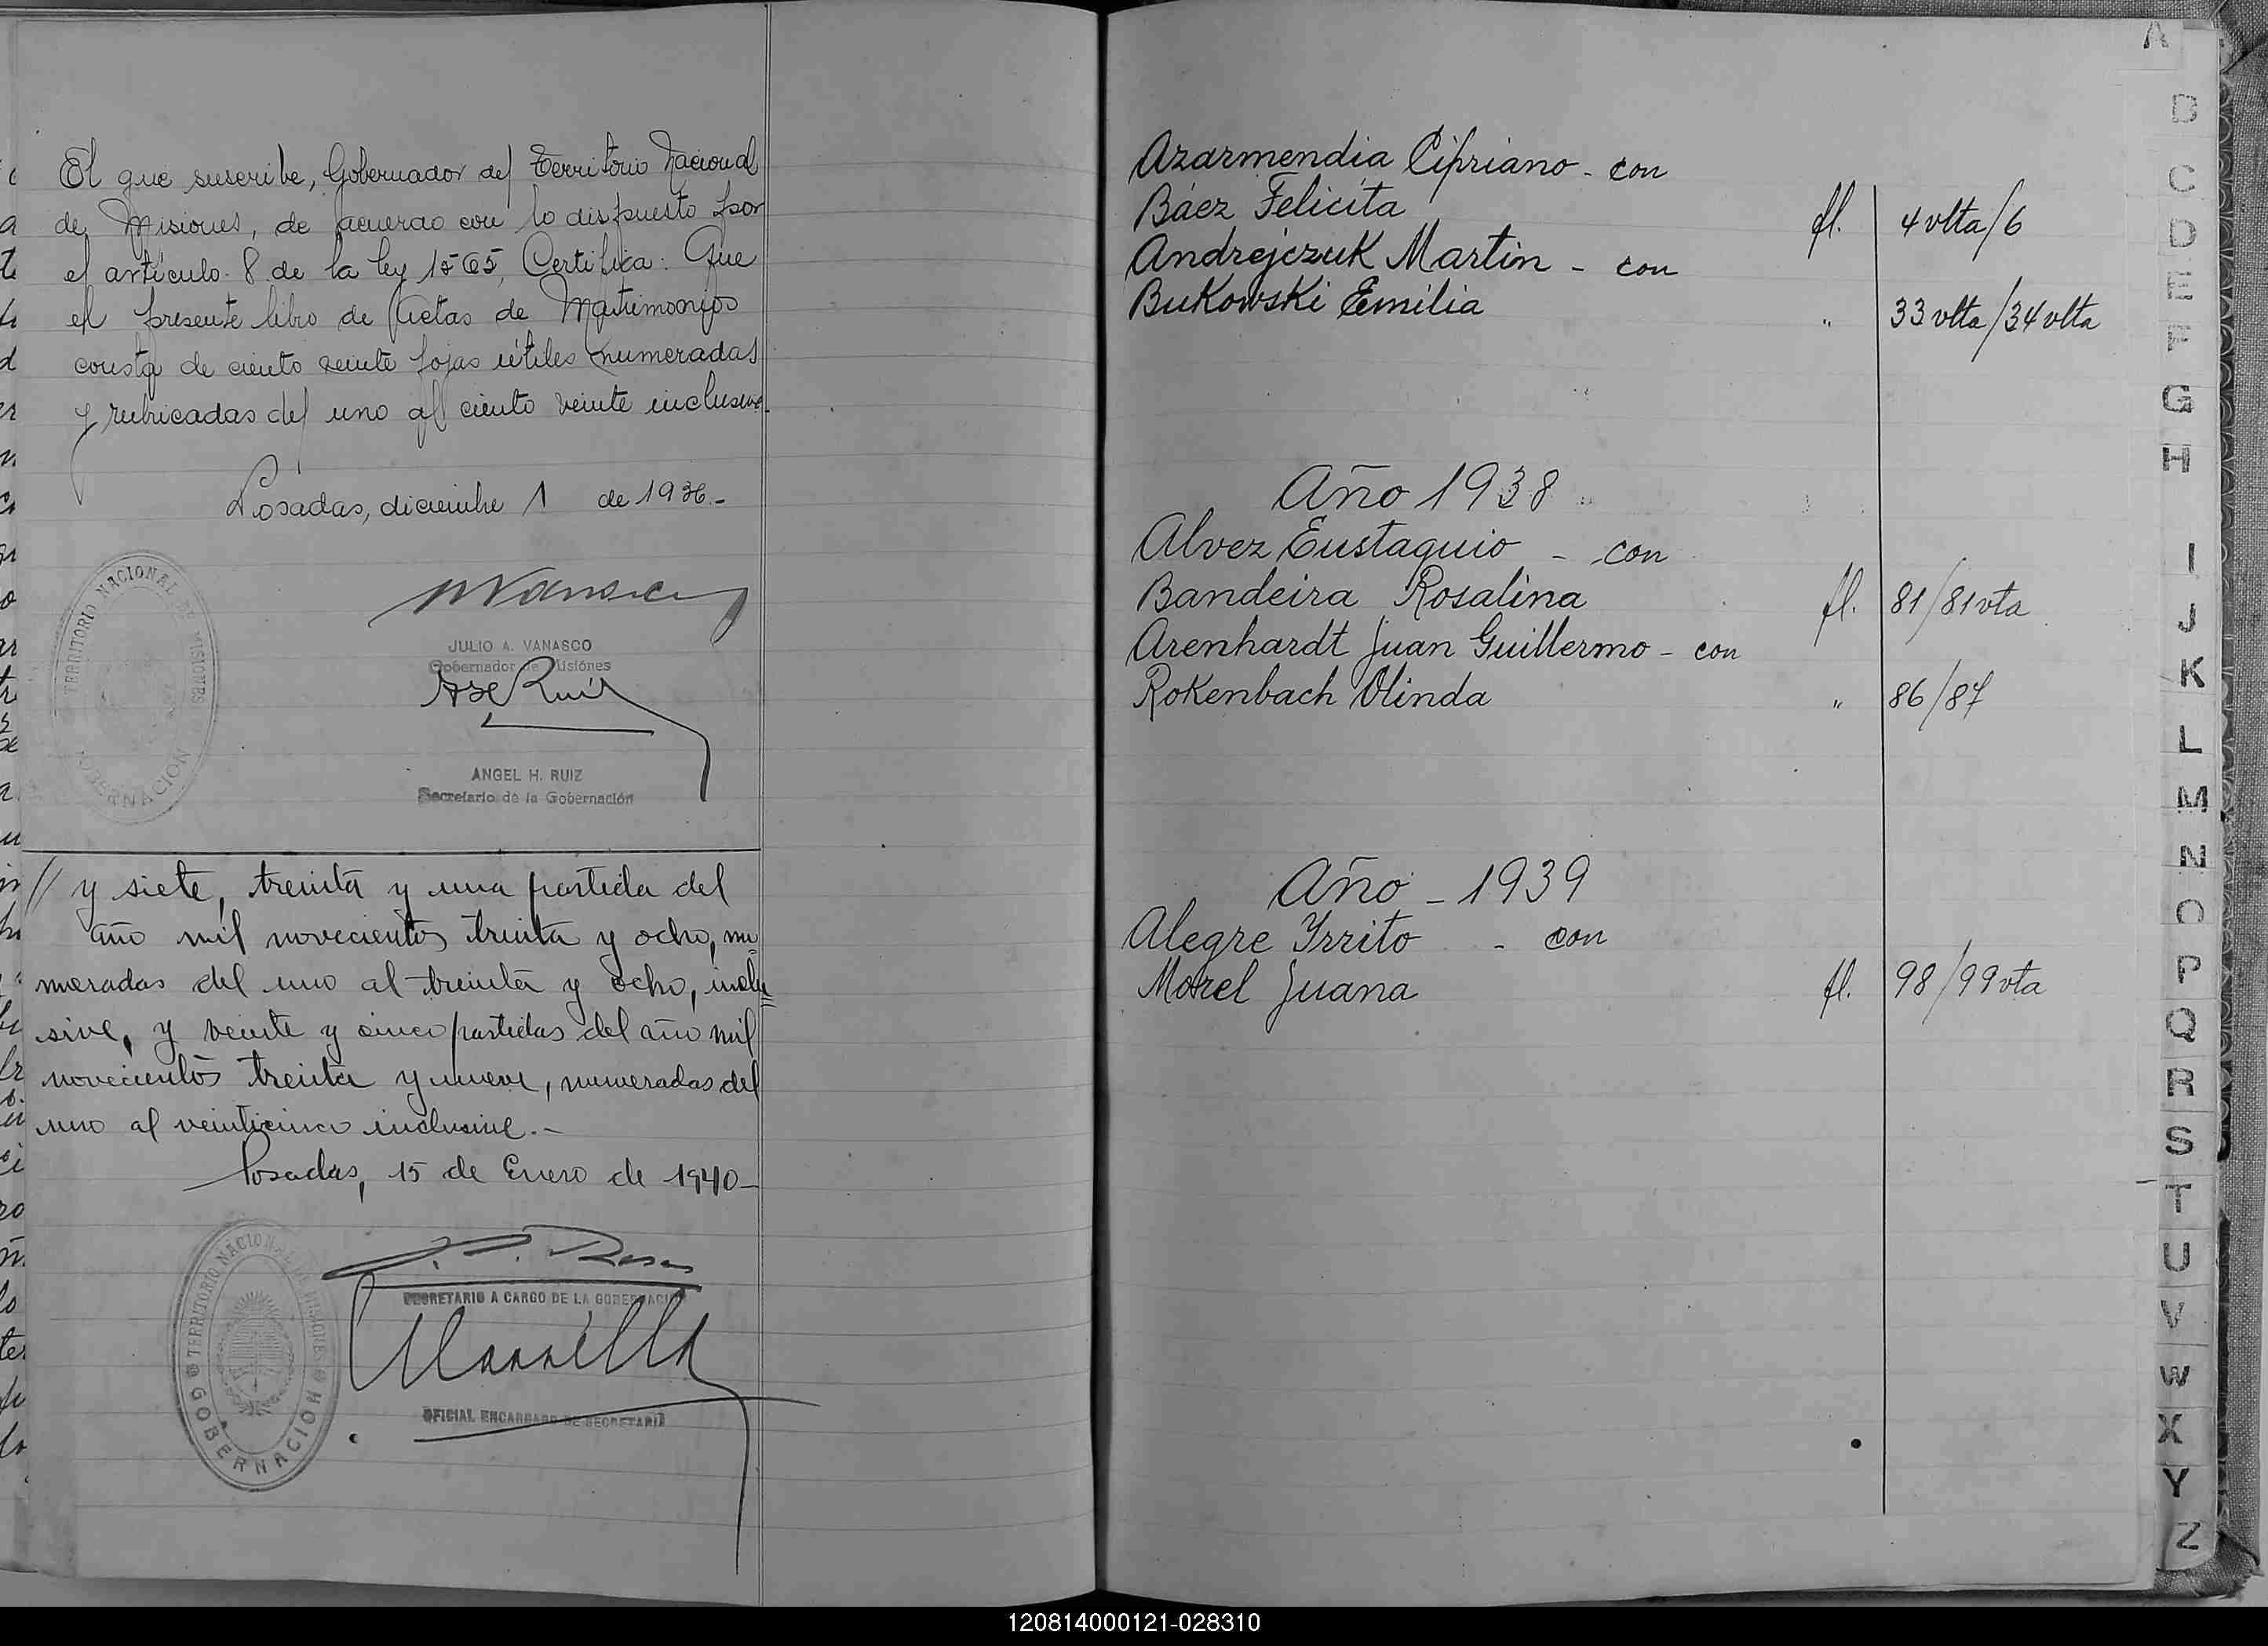 El que suscribe, Gobernador del Territorio Nacional
de Misiones, de acuerdo con lo dispuesto por
el artículo 8 de la ley 1565, Certifica: Que
el presente libro de Actas de Matrimonios
consta de ciento veinte fojas útiles numeradas
y rubricadas del uno al ciento veinte inclusive.
Posadas, diciembre 1 de 1936.-
TERRITORIO NACIONAL DE MISIONES
GOBERNACION
JULIO A. VANASCO
Gobernador de Misiónes
JULIO
ANGEL H. RUIZ
Secretario de la Gobernación
// y siete, treinta y una partida del
año mil novecientos trienta y ocho, nu=
meradas del uno al treinta y ocho, inclu=
sive, y veinte y cinco partidas del año mil
novecientos treinta y nueve, numeradas del
uno al veinticinco inclusive.-
Posadas, 15 de Enero de 1940-
TERRITORIO NACIONAL DE MISIONES
GOBERNACION
SECRETARIO A CARGO DE LA GOBERNACION
OFICIAL ENCARGADO DE SECRETARIA
Azarmendia Cipriano - con
Báez Felicita fl. 4 vlta/6
Andrejczuk Martin - con
Bukowski Emilia " 33 vlta/34 vlta
Año 1938
Alvez Eustaquio - con
Bandeira Rosalina fl. 81/81 vta
Arenhardt Juan Guillermo - con
Rokenbach Olinda " 86/87
Año - 1939
Alegre Yrrito - con
Morel Juana fl. 98/99 vta
A
B
C
D
E
F
G
H
I
J
K
L
M
N
O
P
Q
R
S
T
U
V
W
X
Y
Z
120814000121-028310